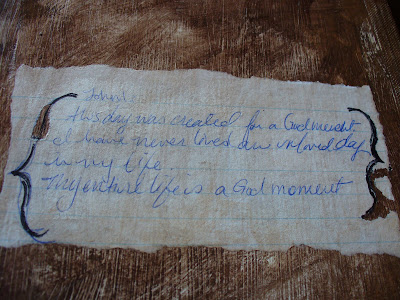 John 1
this day was created for a God moment.
I have never lived one unloved day
in my life
My entire life is a God moment